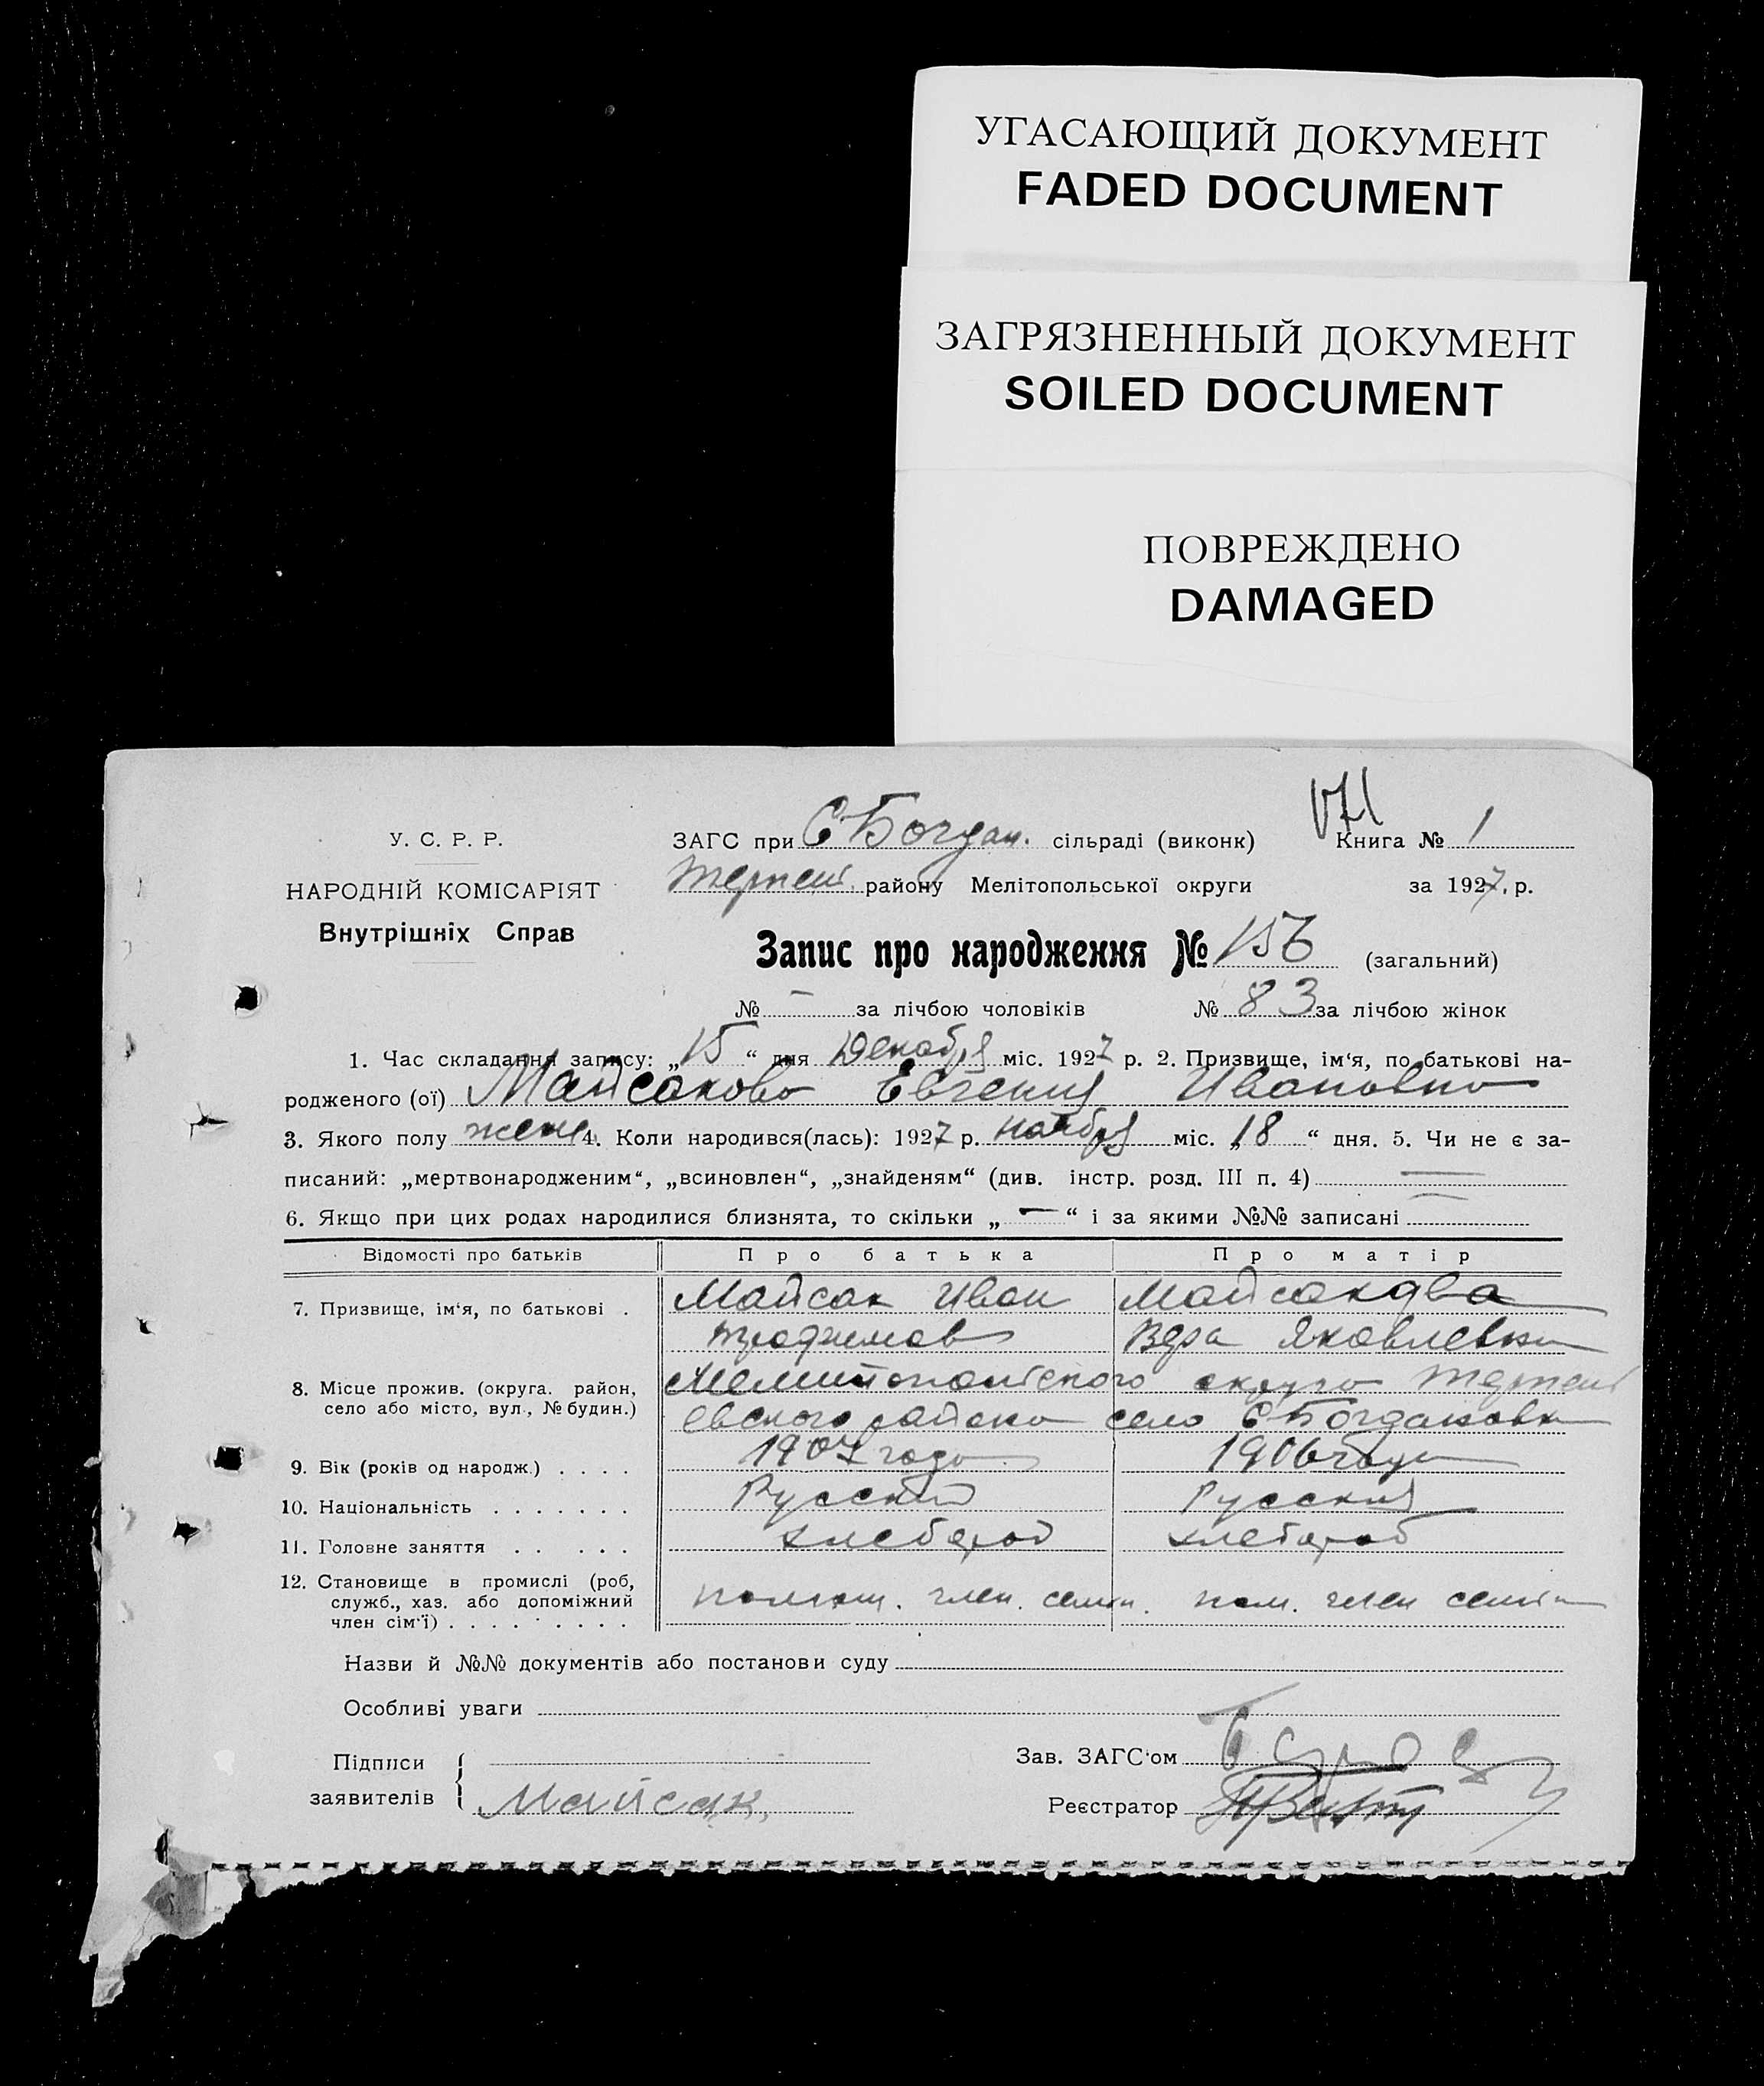 УГАСАЮЩИЙ ДОКУМЕНТ
FADED DOCUMENT
ЗАГРЯЗНЕННЫЙ ДОКУМЕНТ
SOILED DOCUMENT
ПОВРЕЖДЕНО
DAMAGED
У. С. Р. Р.
НАРОДНІЙ КОМІСАРІЯТ
Внутрішніх Справ
ЗАГС при С Богдан. сільраді (виконк) Книга № 1
району Мелітопольської округи за 1927 р.
Запис про народження № 156 (загальний)
№ — за лічбою чоловіків № 83 за лічбою жінок
1. Час складання запису: „15“ дня Декабря міс. 1927 р. 2. Призвище, ім‘я, по батькові на-
родженого (ої) Майсакова Евгения Ивановна
3. Якого полу жен 4. Коли народився(лась): 1927 р. ноября міс. „18“ дня. 5. Чи не є за-
писаний: „мертвонародженим“, „всиновлен“, „знайденям“ (див. інстр. розд. III п. 4) —
6. Якщо при цих родах народилися близнята, то скільки „—“ і за якими №№ записані
Відомості про батьків Про батька Про матір
7. Призвище, ім‘я, по батькові . Майсак Иван Майсакова
Трофимов Вера Яковлевна
8. Місце прожив. (округа. район, Мелитопольского округа
село або місто, вул., № будин.) евского района село С Богдановка
9. Вік (років од народж.) . . . . 1907 года 1906 года
10. Національність . . . . . . . Русский Русская
11. Головне заняття . . . . . хлебороб хлебороб
12. Становище в промислі (роб,
служб., хаз. або допоміжний член семьи. пом. член семьи
член сім‘ї) . . . . . . . . .
Назви й №№ документів або постанови суду
Особливі уваги
Підписи
заявителів Майсак
Зав. ЗАГС‘ом
Реєстратор